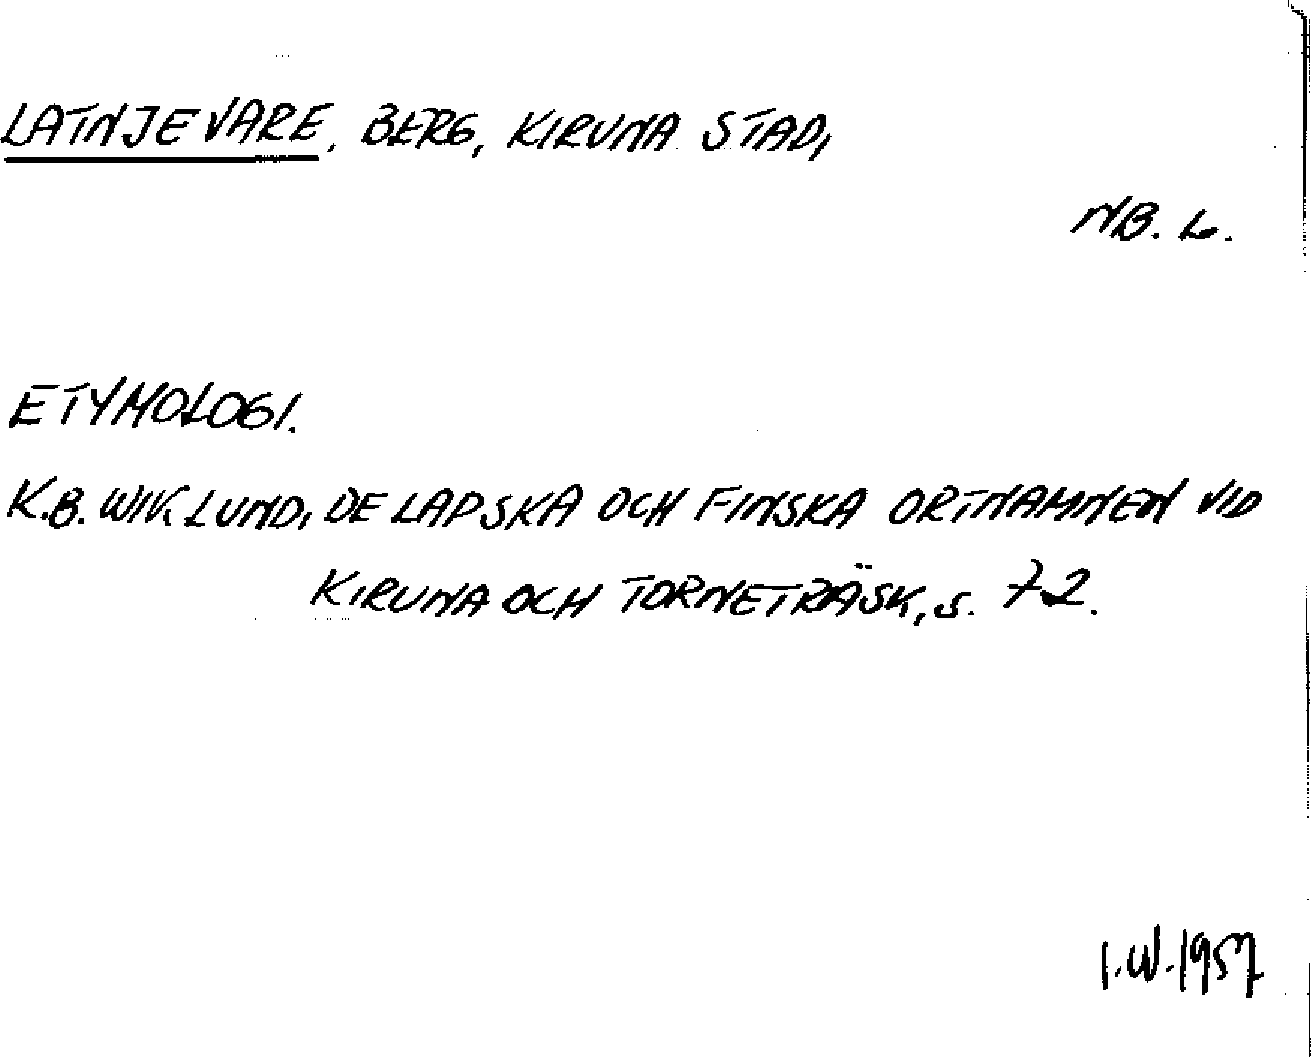 LATNJEVARE, BERG, KIRUNA STAD,
NB. L.
ETYMOLOGI.
K.B. WIKLUND, DE LAPSKA OCH FINSKA ORTNAMNEN VID
KIRUNA OCH TORNETRÄSK, s. 72.
I.W. 1957